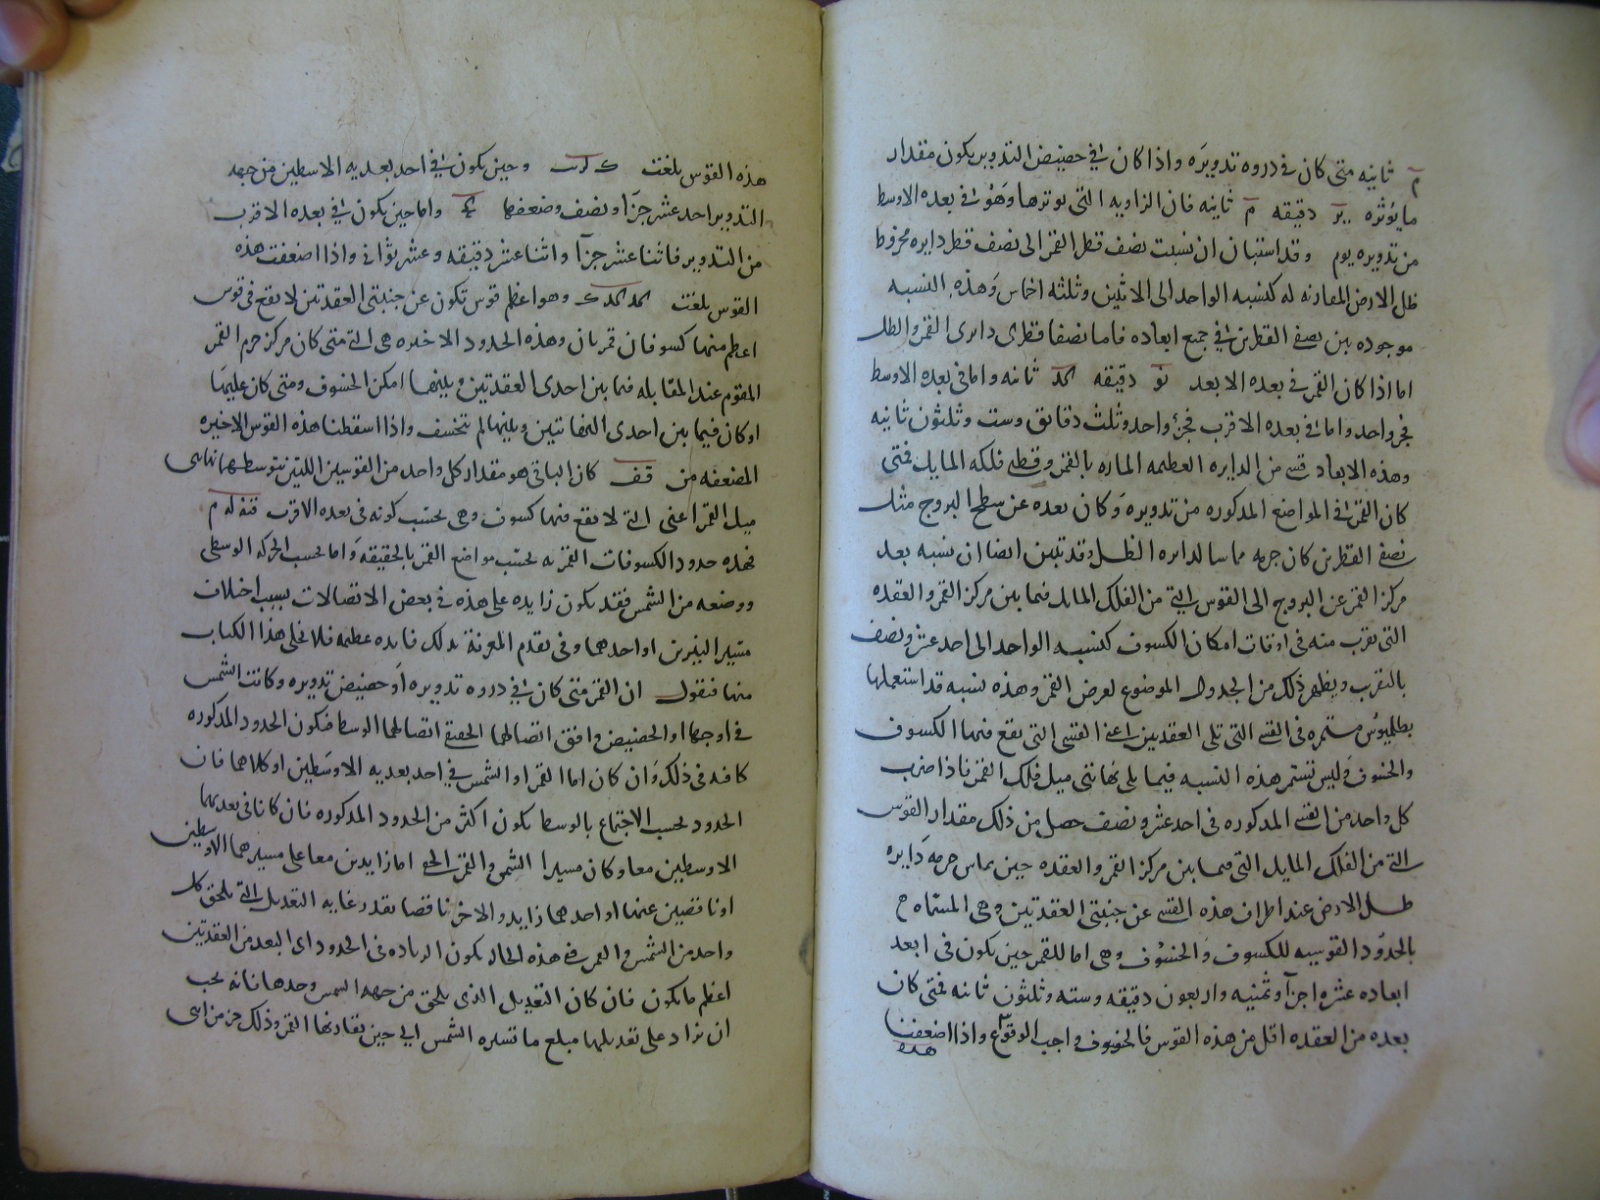 م ثانيه متى كان فى دروه تدويره واذا كان فى حضيض التدوير يكون مقدار
ما يوتره دقيقه م ثانيه فان الزاويه التى يوترها وهو فى بعده الاوسط
من تدويره يوم وقد استبان ان نسبت نصف قطر القمر الى نصف قطر دايره مخروط
ظل الارض المقارنه له كنسبه الواحد الى الاثنين وثلثه اخماس وهذه النسبه
موجوده بين نصفى القطرين فى جميع ابعاده فاما نصفا قطرى دايرى القمر والظل
اما اذا كان القمر فى بعده الابعد نو دقيقه كد ثانيه واما فى بعده الاوسط
فجز واحد واما فى بعده الاقرب فجز واحد وثلث دقايق وست وثلثون ثانيه
وهذه الابعاد قسى من الدايره العظيمه الماره بالقمر وقطبى فلكه المايل فمتى
كان القمر فى المواضع المذكوره من تدويره وكان بعده عن سطح البروج مثل
نصفى القطرين كان جرمه مماسا لدايره الظل وقد تبين ايضا ان نسبه بعد
مركز القمر عن البروج الى القوس التى من الفلك المايل فيما بين مركز القمر والعقده
التى تقرب منه فى اوقات امكان الكسوف كنسبه الواحد الى احد عشر ونصف
بالتقرب ويظهر ذلك من الجدول الموضوع لعرض القمر وهذه نسبه قد استعملها
بطلميوس مستمره فى القسى التى تلى العقدين اعنى القسى التى تقع فيها الكسوف
والخسوف وليس تستمر هذه النسبه فيما يلى نهايتى ميل فلك القمر فاذا ضرب
كل واحد من القسى المذكوره فى احد عشر ونصف حصل من ذلك مقدار القوس
التى من الفلك المايل التى فيما بين مركز القمر والعقده حين يماس جرمه دايره
ظل الارض عند اطراف هذه القسى عن جنبتى العقدتين وهى المسماه
بالحدود القوسيه للكسوف والخسوف وهى اما للقمر حين يكون فى ابعد
ابعاده عشره اجزا وثمنيه واربعون دقيقه وسته وثلثون ثانيه فمتى كان
بعده من العقده اقل من هذه القوس فالخسوف واجب الوقوع واذا اضعفنا
هذه
هذه القوس بلغت وحين يكون فى احد بعديه الاوسطين من جهه
التدوير احد عشر جزا ونصف وضعفها كج واما حين يكون فى بعده الاقرب
من التدوير فاثنا عشر جزا واثنا عشر دقيقه وعشر ثوانى واذا اضعفت هذه
القوس بلغت كد كد ك وهو اعظم قوس تكون عن جنبتى العقدتين لا تقع فى قوس
اعظم منها كسوفان قمريان وهذه الحدود الاخيره هى التى متى كان مركز جرم القمر
المقوم عند المقابله فيما بين احدى العقدتين ويلينها امكن الخسوف ومتى كان عليها
او كان فيما بين احدى النهايتين ويلينها لم تنخسف واذا اسقطنا هذه القوس الاخيره
المضعفه من قف كان الباقى هو مقدار كل واحد من القوسين اللتين تتوسطهما نهايتى
ميل القمر اعنى التى لا تقع فيها كسوف وهى بحسب كونه فى بعده الاقرب قنه له م
فهذه حدود الكسوفات القمريه بحسب مواضع القمر بالحقيقه واما بحسب الحركه الوسطى
ووضعه من الشمس فقد يكون زايده على هذه فى بعض الاتصالات بسبب اختلاف
مسير النيرين او احدهما وفى تقدم المعرفة بذلك فايده عظيمه فلا نخلى هذا الكتاب
منها فنقول ان القمر متى كان فى دروه تدويره او حضيض تدويره وكانت الشمس
فى اوجها او الحضيض وافق اتصالهما الحقيقى اتصالهما الوسط فتكون الحدود المذكوره
كافيه فى ذلك وان كان اما القمر او الشمس فى احد بعديه الاوسطين او كلاهما فان
الحدود بحسب الاجتماع بالوسط يكون اكثر من الحدود المذكوره فان كانا فى بعديهما
الاوسطين معا وكان مسيرا الشمس والقمر الحق اما زايدين معا على مسيرهما الاوسطين
او ناقصين عنها او احدهما زايد والاخر ناقصا بقدر غايه التعديل التى تلحق كل
واحد من الشمس والقمر فى هذه الحال يكون الزياده فى الحدود اى البعد من العقدتين
اعظم ما يكون فان كان التعديل الذى يلحق من جهه الشمس وحدها فانه يجب
ان نزاد على تعديلهما مبلغ ما تسيره الشمس الى حين يقارنها القمر وذلك جز من اثنى